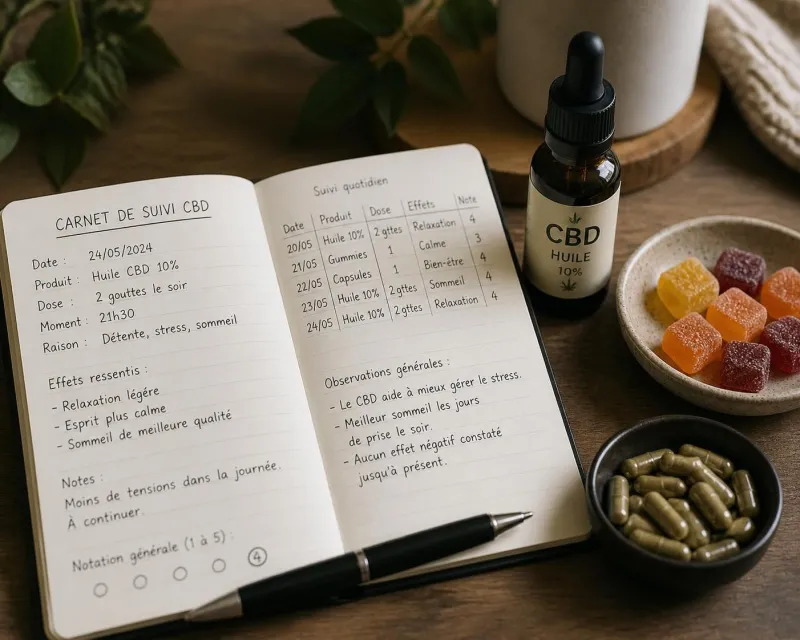 CARNET DE SUIVI CBD
Date : 24/05/2024
Produit : Huile CBD 10%
Dose : 2 gouttes le soir
Moment : 21h30
Raison : Détente, stress, sommeil
Effets ressentis :
- Relaxation légére
- Esprit plus calme
- Sommeil de meilleure qualité
Notes :
Moins de tensions dans la journée.
À continuer.
Notation générale (1 à 5) :
4
Suivi quotidien
Date Produit Dose Effets Note
20/05 Huile 10% 2 gttes Relaxation 4
21/05 Gummies 1 Calme 3
22/05 Capsules 1 Bien-être 4
23/05 Huile 10% 2 gttes Sommeil 4
24/05 Huile 10% 2 gttes Relaxation 4
Observations générales :
- Le CBD aide à mieux gérer le stress.
- Meilleur sommeil les jours
de prise le soir.
- Aucun effet négatif constaté
jusqu'à présent.
CBD
HUILE
10%